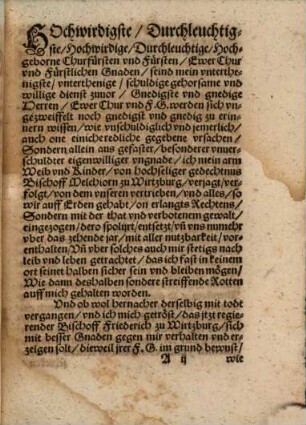 HOchwirdigste / Durchleuchtig-
ste / Hochwirdige / Durchleuchtige / Hoch-
geborne Churfürsten vnd Fürsten / Ewer Chur
vnd Fürstlichen Gnaden / seind mein vnterthe-
nigste / vnterthenige / schuldige gehorsame vnd
willige dienst zuuor / Gnedigste vnd gnedige
Herren / Ewer Chur vnd F. G. werden sich vn-
gezweiffelt noch gnedigst vnd gnedig zu erin-
nern wissen / wie vnschuldiglich vnd jemerlich /
auch one einiche redliche gegebene vrsachen /
Sondern allein aus gefaster / besonderer vnuer-
schuldter eigenwilliger vngnade / ich mein arm
Weib vnd Kinder / von hochseliger gedechtnus
Bischoff Melchiorn zu Wirtzburg / verjagt / ver-
folgt / von dem vnseren vertrieben / vnd alles / so
wir auff Erden gehabt / on erlangts Rechtens /
Sondern mit der that vnd verbotenem gewalt /
eingezogen / dero spolijrt / entsetzt / vñ vns numehr
vber das zehende jar / mit aller nutzbarkeit / vor-
enthalten / Vñ vber solches auch mit stetigs nach
leib vnd leben getrachtet / das ich fast in keinem
ort seinet halben sicher sein vnd bleiben mögen /
Wie dann deshalben sondere streiffende Rotten
auff mich gehalten worden.
Vnd ob wol hernacher derselbig mit todt
vergangen / vnd ich mich getröst / das itz regie-
render Bischoff Friederich zu Wirtzburg / sich
mit besser Gnaden gegen mir verhalten vnd er-
zeigen solt / dieweil jrer F. G. im grund bewust /
A ij wie